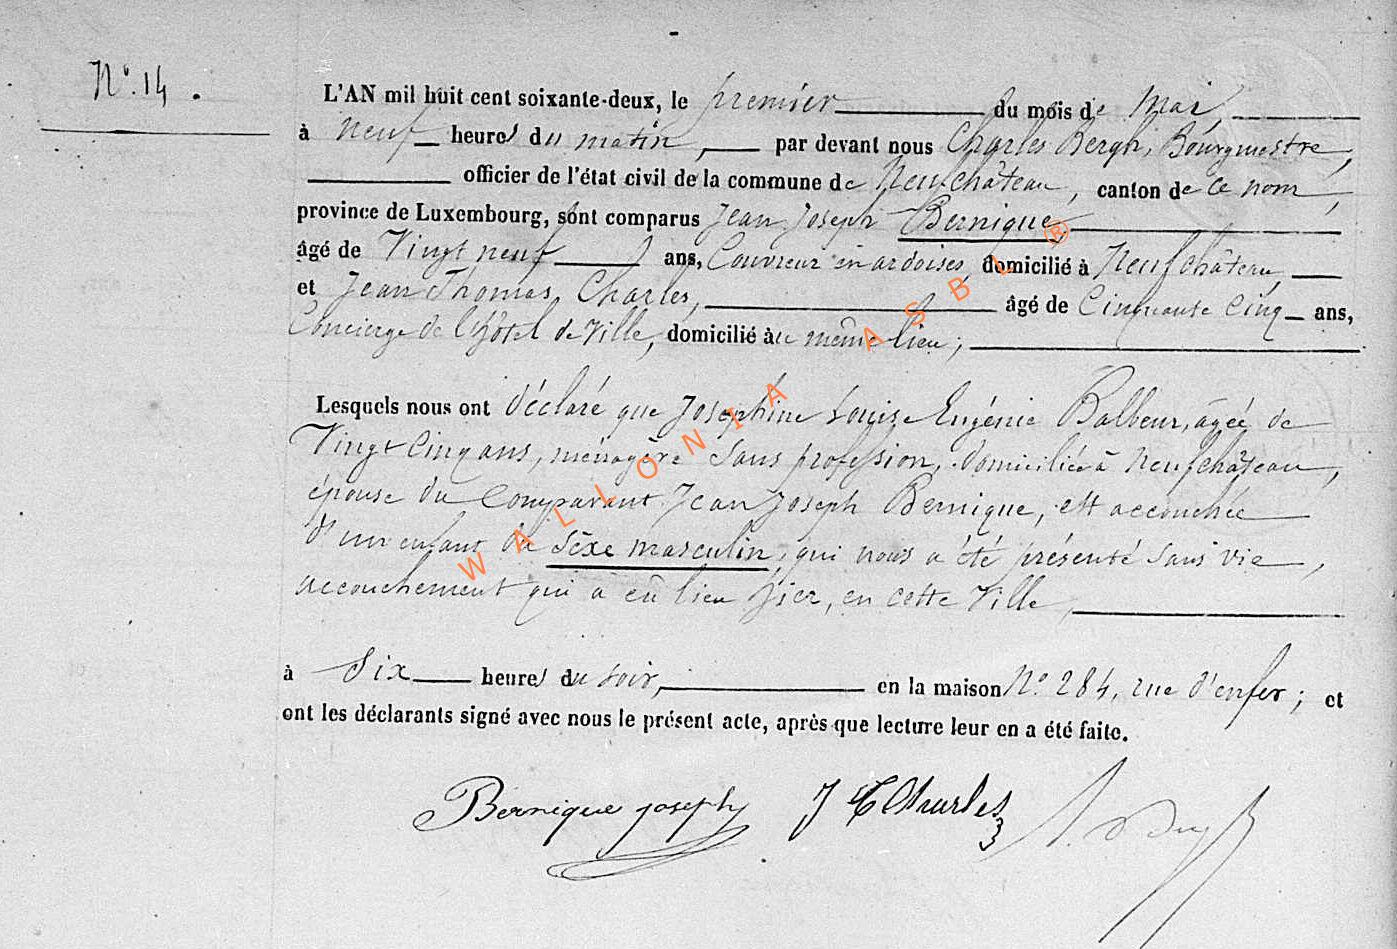 N° 14.
L'AN mil huit cent soixante-deux, le premier du mois de Mai,
à neuf heures du matin, par devant nous Charles Bergh, Bourgmestre,
officier de l'état civil de la commune de Neufchâteau, canton de ce nom,
province de Luxembourg, sont comparus Jean Joseph Bernique
âgé de Vingt neuf ans, Couvreur en ardoises, domicilié à Neufchâteau,
et Jean Thomas Charles, âgé de Cinquante Cinq ans,
Concierge de l'hôtel de Ville, domicilié au même lieu;
Lesquels nous ont déclaré que Joséphine Louise Eugénie Balbeur, agée de
Vingt Cinq ans, ménagère sans profession, domiciliée à Neufchâteau,
épouse du Comparant Jean Joseph Bernique, est accouchée
d'un enfant du sèxe masculin, qui nous a été présenté sans vie,
accouchement qui a eû lieu hier, en cette Ville,
à Six heures du soir, en la maison N° 284, rue d'enfer; et
ont les déclarants signé avec nous le présent acte, après que lecture leur en a été faite.
Bernique joseph J T Charles
WALLONIA ASBL ®